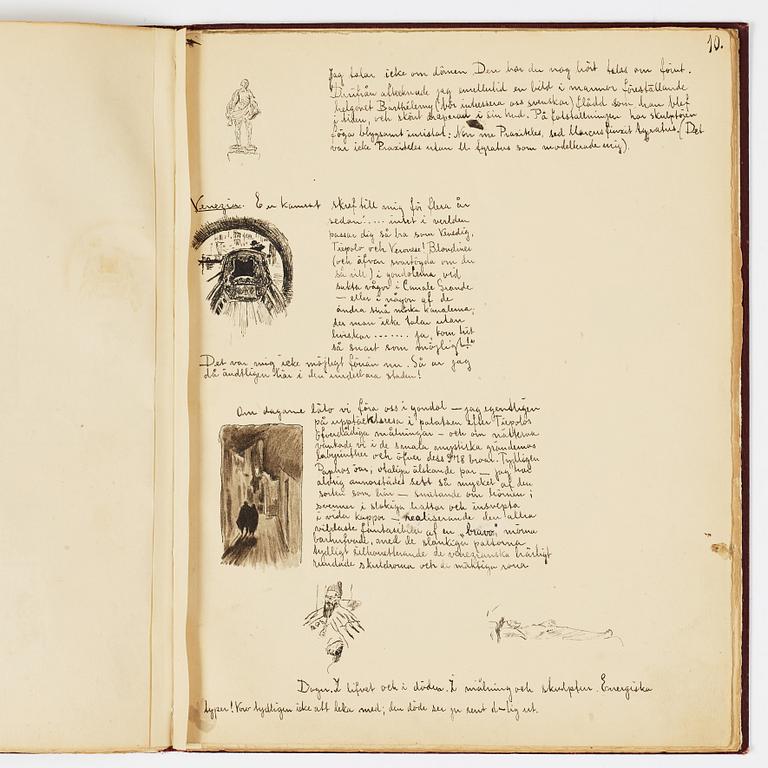 10.
Jag talar icke om dômen Den har du nog hört talas om förut.
Därifrån aftecknade jag emellertid en bild i marmor föreställande
helgonet Barthélemy (bör intressera oss svenskar) flådd som han blef
i tiden, och skönt draperad i sin hud. På fotställningen har skulptören
föga blygsamt inristat: Non me Praxiteles, sed Marcus finxit Agratus. (Det
var icke Praxiteles utan M. Agratus som modellerade mig).
Venezia. En kamrat skref till mig för flera år
sedan: .... intet i verlden
passar dig så bra som Venedig,
Tiepolo och Veronese! Blondiner
(och äfven svartögda om du
så vill) i gondolerna vid
sakta vågor i Canale Grande
— eller i någon af de
andra små mörka kanalerna,
der man icke talar utan
hviskar ....... ja, kom hit
så snart som möjligt!"
Det var mig icke möjligt förrän nu. Så är jag
då ändtligen här i den underbara staden!
Om dagarne låto vi föra oss i gondol — jag egentligen
på upptäcktsresa i palatsen efter Tiepolos
öfverdådiga målningar — och om nätterna
vankade vi i de smala mystiska grändernas
labyrinther och öfver dess 378 broar. Tydligen
Paphos öar; otaliga älskande par — jag har
aldrig annorstädes sett så mycket af den
sorten som här — smitande om hörnen;
svenner i slokiga hattar och insvepta
i vida kappor — realiserande den allra
vildaste fantasibild af en "bravo"; mörna
barhufvade, med de slankiga paltorna
tydligt silhouetterande de venezianska härligt
rundade skuldrorna och de mäktiga
Doger. I lifvet och i döden. I målning och skulptur. Energiska
typer! Voro tydligen icke att leka med; den döde ser ju rent d—lig ut.